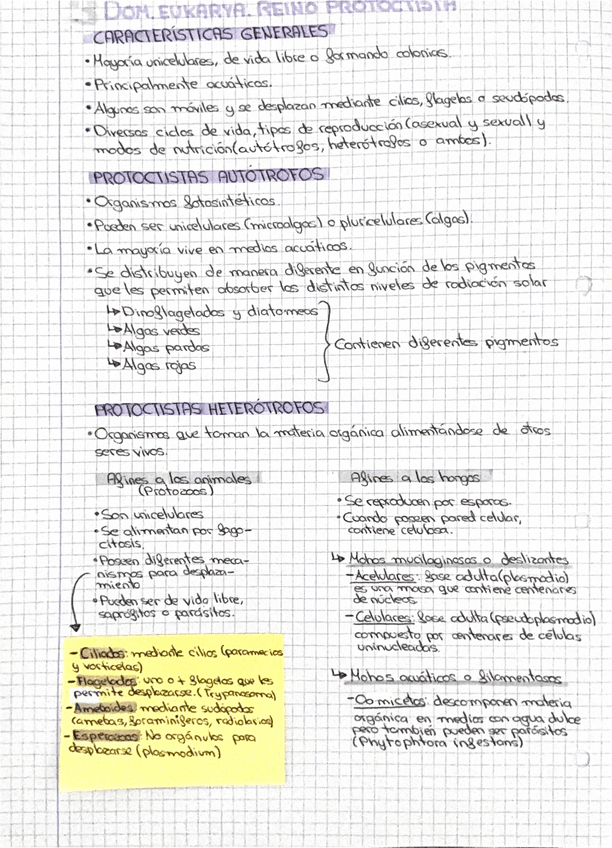 DOM. EUKARYA. REINO PROTOCTISTA
CARACTERÍSTICAS GENERALES
• Mayoría unicelulares, de vida libre o formando colonias.
• Principalmente acuáticos.
• Algunos son móviles y se desplazan mediante cilios, flagelos o seudópodos.
• Diversos ciclos de vida, tipos de reproducción (asexual y sexual) y
modos de nutrición (autótrofos, heterótrofos o ambos).
PROTOCTISTAS AUTÓTROFOS
• Organismos fotosintéticos.
• Pueden ser unicelulares (microalgas) o pluricelulares (algas).
• La mayoría vive en medios acuáticos.
• Se distribuyen de manera diferente en función de los pigmentos
que les permiten absorber los distintos niveles de radiación solar
↳ Dinoflagelados y diatomeas
↳ Algas verdes
↳ Algas pardas
↳ Algas rojas
Contienen diferentes pigmentos
PROTOCTISTAS HETERÓTROFOS
• Organismos que toman la materia orgánica alimentándose de otros
seres vivos.
Afines a los animales
(Protozoos)
• Son unicelulares
• Se alimentan por fago-
citosis.
• Poseen diferentes meca-
nismos para desplaza-
miento
• Pueden ser de vida libre,
saprófitos o parásitos.
- Ciliados: mediante cilios (paramecios
y vorticelas)
- Flagelados: uno o + flagelos que les
permite desplazarse. (Trypanosoma)
- Ameboides: mediante sudopodos
(amebas, foraminíferos, radiolarios)
- Esporozoos: No orgánulos para
desplazarse (plasmodium)
Afines a los hongos
• Se reproducen por esporas.
• Cuando poseen pared celular,
contiene celulosa.
↳ Mohos mucilaginosos o deslizantes
- Acelulares: fase adulta (plasmodio)
es una masa que contiene centenares
de núcleos
- Celulares: fase adulta (pseudoplasmodio)
compuesto por centenares de células
uninucleadas.
↳ Mohos acuáticos o filamentosos
- Oomicetos: descomponen materia
orgánica en medios con agua dulce
pero también pueden ser parásitos
(Phytophtora infestans)